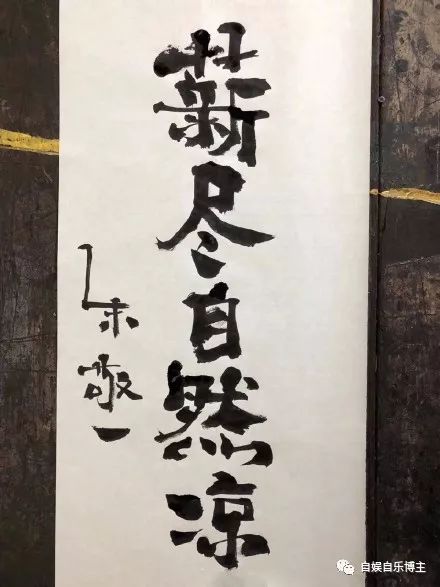 薪尽自然凉
朱敬一
自娱自乐博主